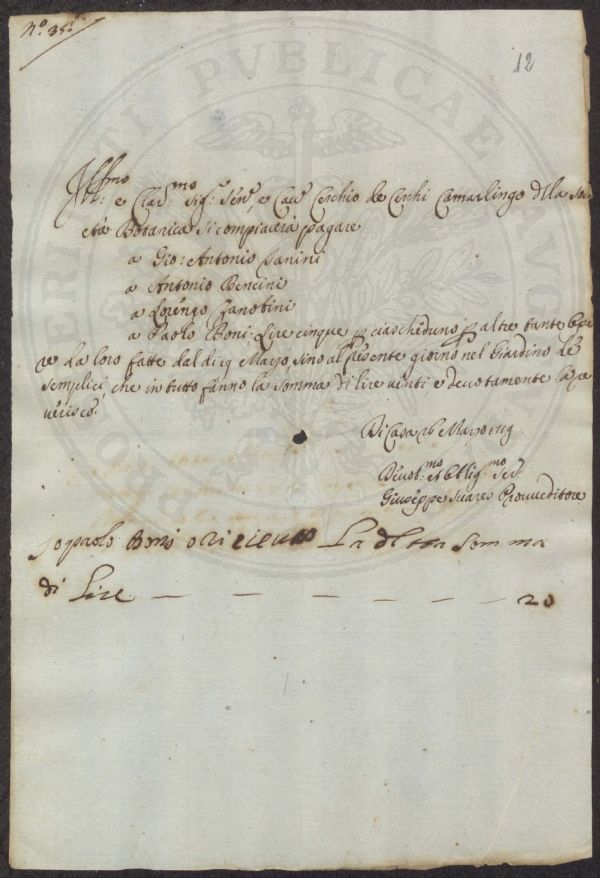 N.º 35.
12
Ill:mo e Clar:mo Sig.r Sen.re, e Cav.re Cerchio de Cerchi Camarlingo della Soci
età Botanica Si compiacerà pagare
a Gio: Antonio Nanini
a Antonio Bencini
a Lorenzo Zanobini
a Paolo Boni: Lire cinque p ciascheduno, p altre tante Ope
re da loro fatte dal dì 19 Mayo, sino al presente giorno nel Giardino de
Semplici, che in tutto fanno la somma di lire venti e devotamente la re
verisco.
Di Casa 26 Mayo
Devot:mo et Oblig:mo Ser.
Giuseppe Suares Provveditore
Jo paolo Boni o ricieuto La detta Somma
di Lire — — — — — — 20
PVBLICAE